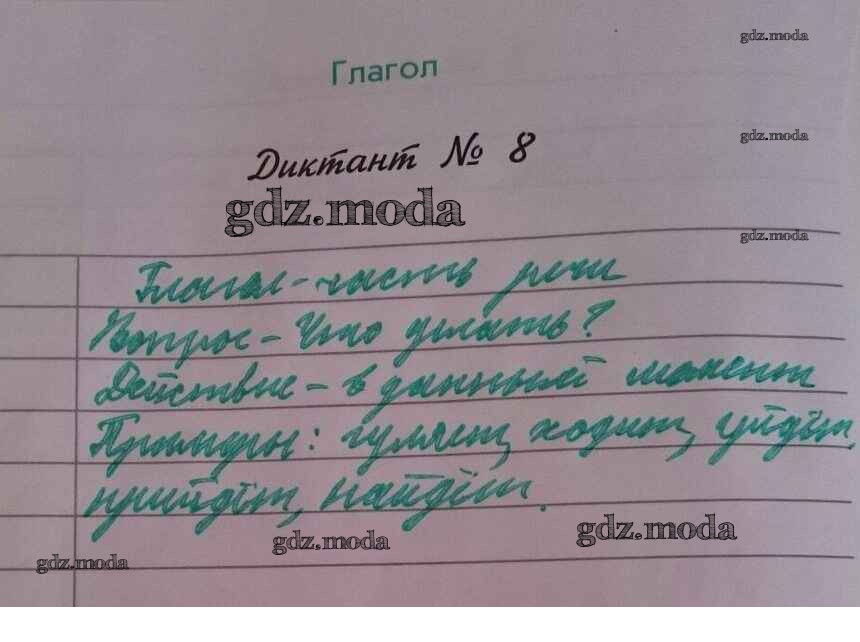 gdz.moda
Глагол
gdz.moda
Диктант № 8
gdz.moda
gdz.moda
Глагол - часть речи
Вопрос - Что делать?
Действие - в данный момент
Примеры: гуляет, ходит, уйдёт,
прийдёт, найдёт.
gdz.moda
gdz.moda
gdz.moda